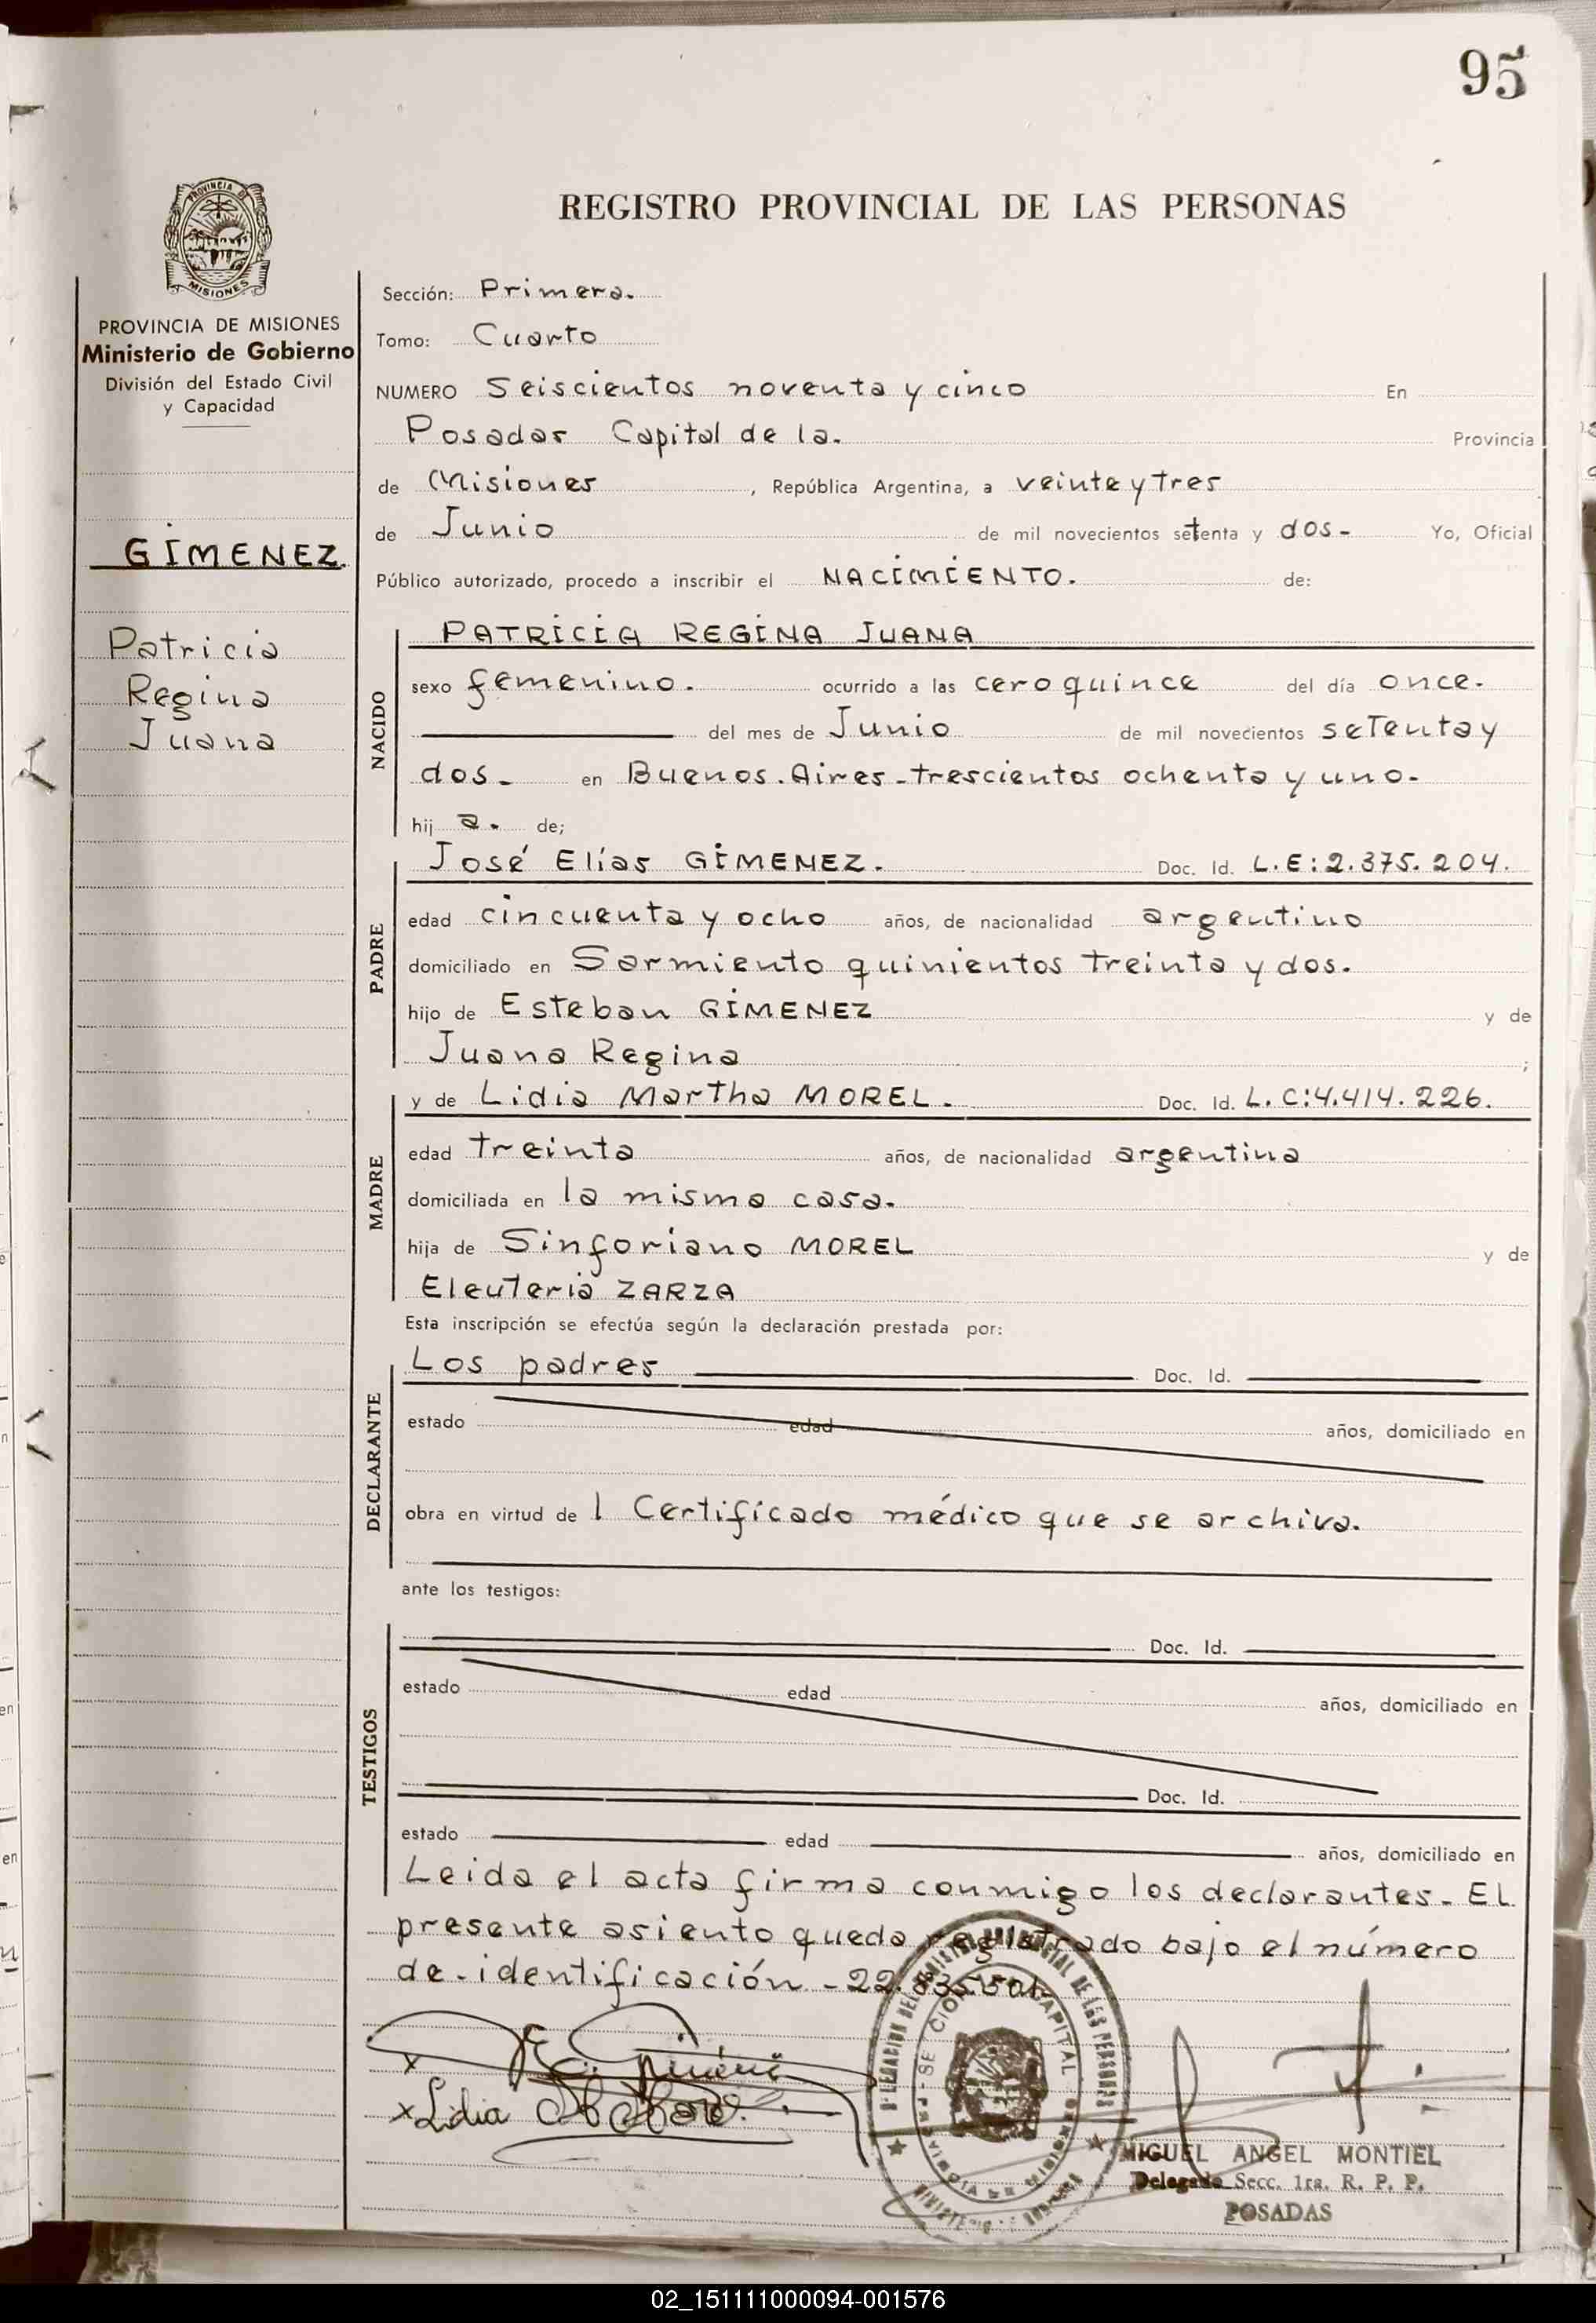 95
REGISTRO PROVINCIAL DE LAS PERSONAS
PROVINCIA DE MISIONES
Ministerio de Gobierno
División del Estado Civil
y Capacidad
GIMENEZ
Patricia
Regina
Juana
Sección: Primera.
Tomo: Cuarto
NUMERO Seiscientos noventa y cinco En
Posadas Capital de la. Provincia
de Misiones, República Argentina, a veinte y tres
de Junio de mil novecientos setenta y dos- Yo, Oficial
Público autorizado, procedo a inscribir el NACIMIENTO. de:
NACIDO
PATRICIA REGINA JUANA
sexo femenino. ocurrido a las cero quince del día once.
del mes de Junio de mil novecientos setenta y
dos- en Buenos.Aires-trescientos ochenta y uno-
hij a. de;
PADRE
José Elías GIMENEZ. Doc. Id. L.E:2.375.204.
edad cincuenta y ocho años, de nacionalidad argentino
domiciliado en Sarmiento quinientos treinta y dos.
hijo de Esteban GIMENEZ y de
Juana Regina ;
MADRE
y de Lidia Martha MOREL. Doc. Id. L.C:4.414.226.
edad treinta años, de nacionalidad argentina
domiciliada en la misma casa.
hija de Sinforiano MOREL y de
Eleuteria ZARZA
Esta inscripción se efectúa según la declaración prestada por:
DECLARANTE
Los padres Doc. Id.
estado edad años, domiciliado en
obra en virtud de 1 Certificado médico que se archiva.
ante los testigos:
TESTIGOS
Doc. Id.
estado edad años, domiciliado en
Doc. Id.
estado edad años, domiciliado en
Leida el acta firma conmigo los declarantes- El
presente asiento queda registrado bajo el número
de-identificación -22.835.501-
x
x Lidia
MIGUEL ANGEL MONTIEL
Delegado Secc. 1ra. R. P. P.
POSADAS
02_151111000094-001576